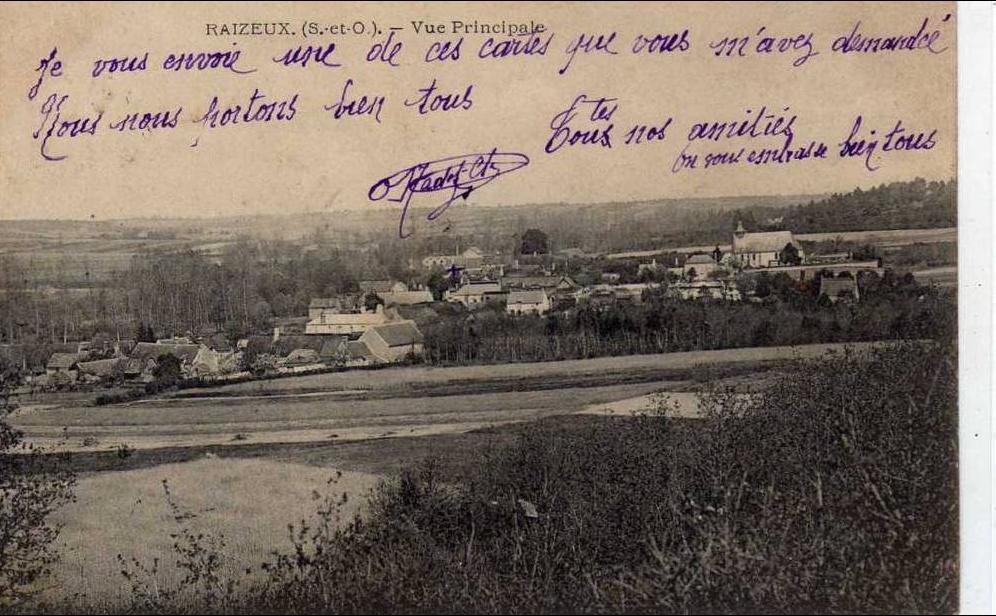 RAIZEUX. (S.-et-O.). — Vue Principale
Je vous envoie une de ces cartes que vous m'avez demandée
Nous nous portons bien tous
Toutes nos amitiés
On vous embrasse bien tous